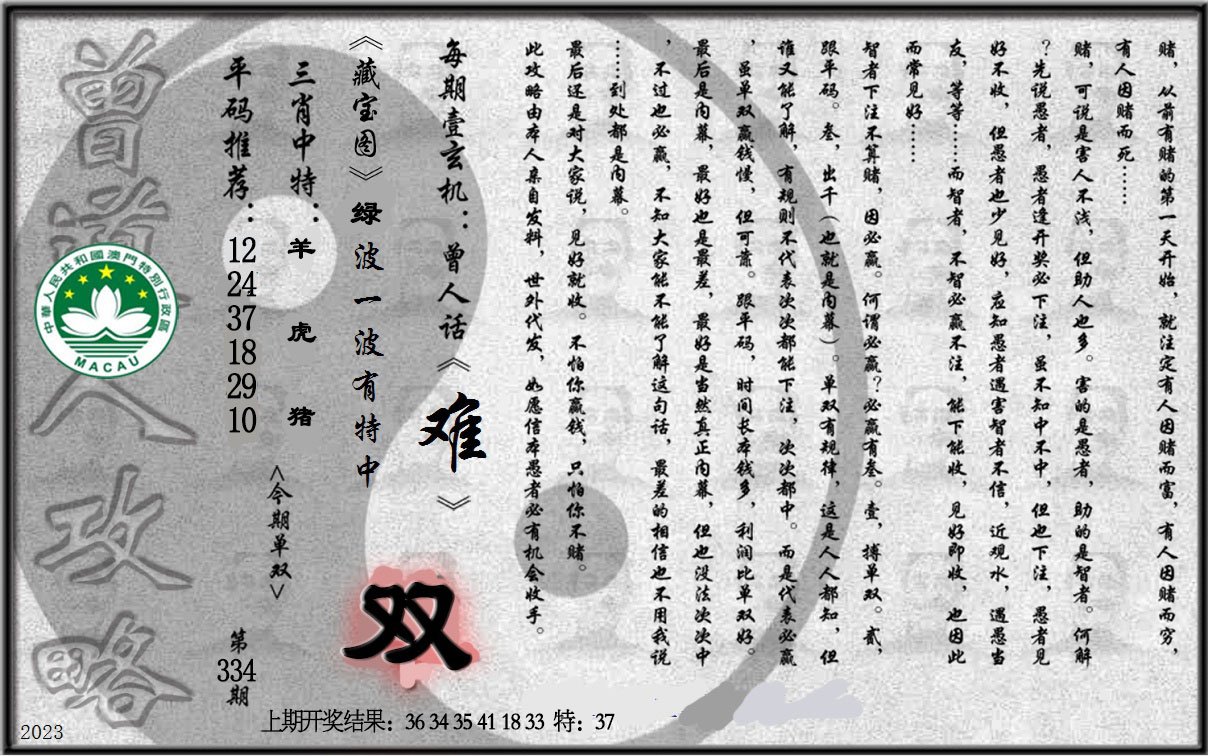 赌，从前有赌的第一天开始，就注定有人因赌而富，有人因赌而穷，
有人因赌而死……
赌，可说是害人不浅，但助人也多。害的是愚者，助的是智者。何解
？先说愚者，愚者逢开奖必下注，虽不知中不中，但也下注，愚者见
好不收，但愚者也少见好，应知愚者遇害智者不信，近观水，遇愚当
友，等等……而智者，不智必赢不注，能下能收，见好即收，也因此
而常见好……
智者下注不算赌，因必赢。何谓必赢？必赢有叁。壹，搏单双。贰，
跟平码。叁，出千（也就是内幕）。单双有规律，这是人人都知，但
谁又能了解，有规则不代表次次都能下注，次次都中。而是代表必赢
，虽单双赢钱慢，但可靠。跟平码，时间长本钱多，利润比单双好。
最后是内幕，最好也是最差，最好是当然真正内幕，但也没法次次中
，不过也必赢，不知大家能不能了解这句话，最差的相信也不用我说
……到处都是内幕。
最后还是对大家说，见好就收。不怕你赢钱，只怕你不赌。
此攻略由本人亲自发料，世外代发，如愿信本愚者必有机会收手。
每期壹玄机：曾人话《难》
《藏宝图》绿波一波有特中
双
三肖中特：羊 虎 猪
<今期单双>
平码推荐：12 24 37 18 29 10
第334期
曾道人攻略
中華人民共和國澳門特別行政區
MACAU
上期开奖结果：36 34 35 41 18 33 特：37
2023